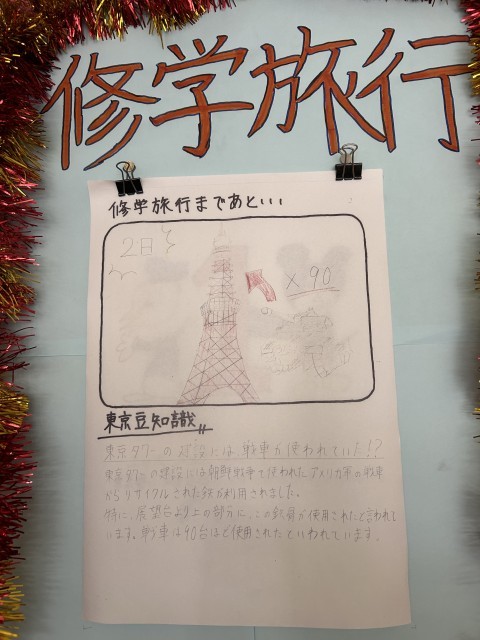 修学旅行
修学旅行まであと...
2日
×90
東京豆知識
東京タワーの建設には戦車が使われていた!?
東京タワーの建設には朝鮮戦争で使われたアメリカ軍の戦車
からリサイクルされた鉄が利用されました。
特に、展望台より上の部分に、この鉄骨が使用されたと言われて
います。戦車は90台ほど使用されたといわれています。